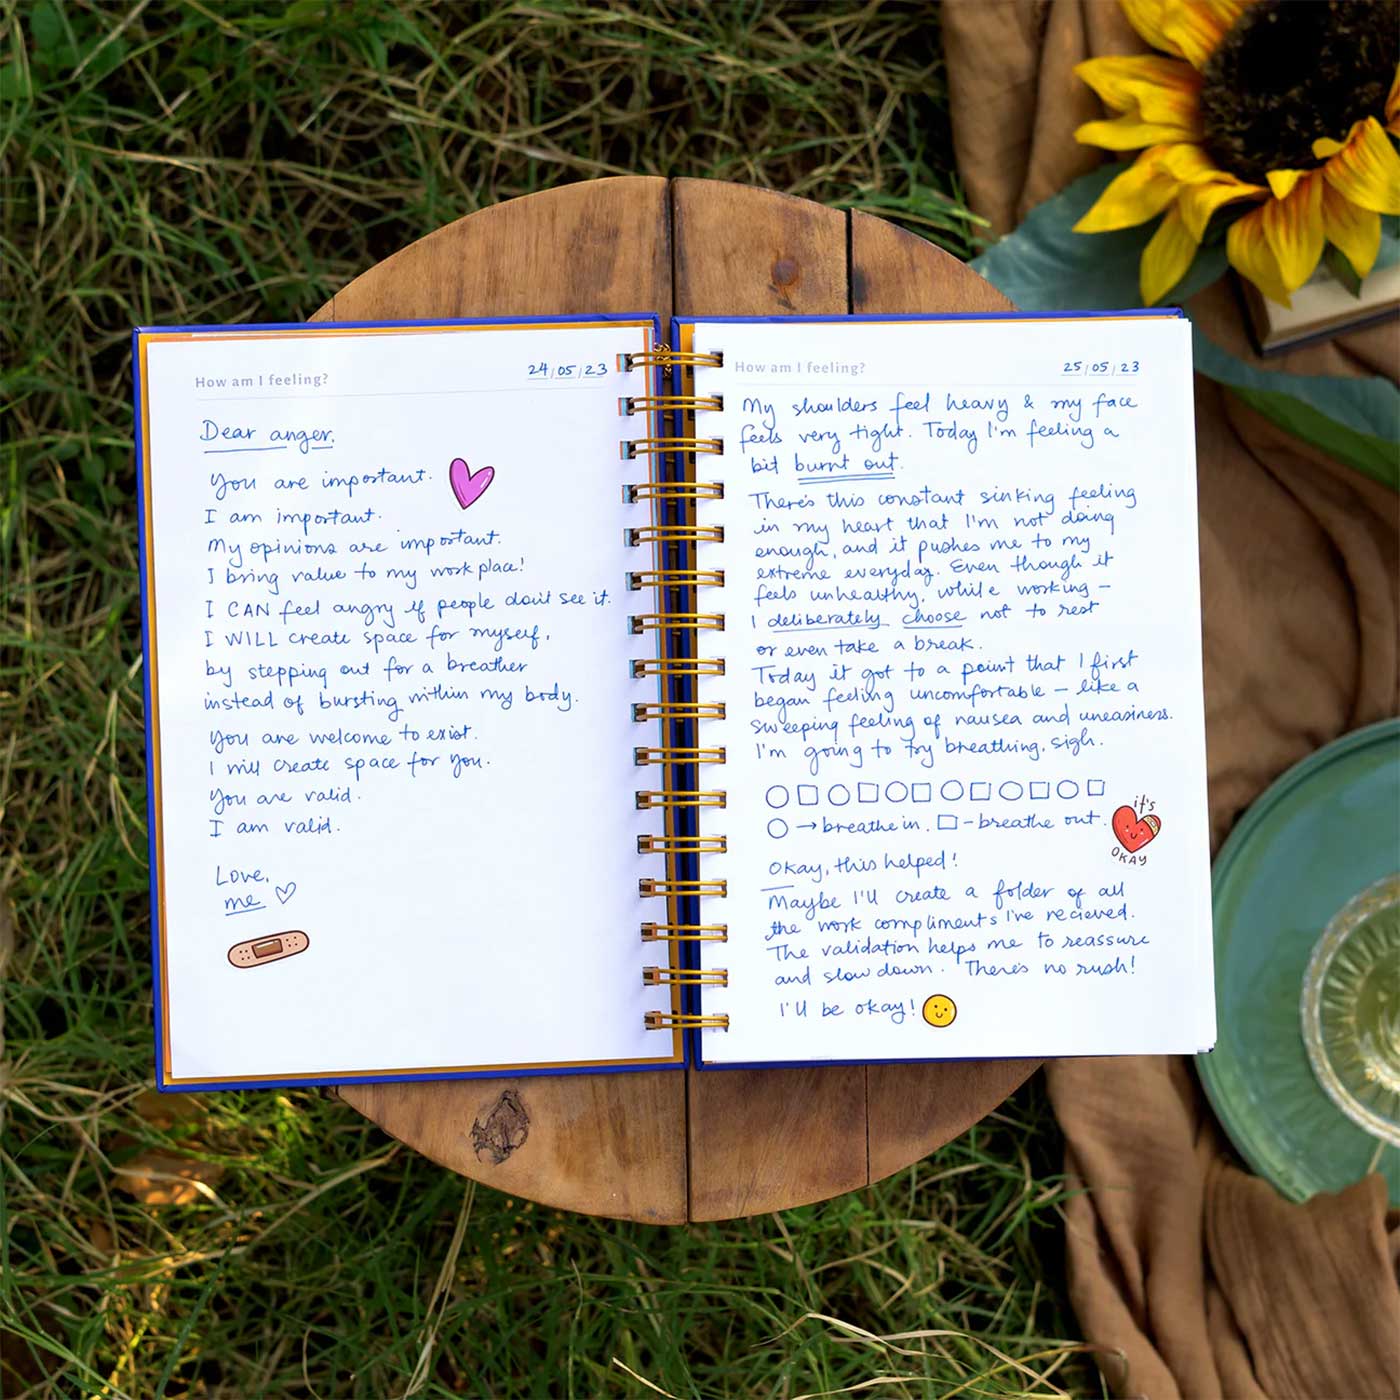 How am I feeling? 24/05/23
Dear anger,
You are important.
I am important.
My opinions are important.
I bring value to my workplace!
I CAN feel angry if people don't see it.
I WILL create space for myself,
by stepping out for a breather
instead of bursting within my body.
You are welcome to exist.
I will create space for you.
You are valid.
I am valid.
Love,
me
How am I feeling? 25/05/23
My shoulders feel heavy & my face
feels very tight. Today I'm feeling a
bit burnt out.
There's this constant sinking feeling
in my heart that I'm not doing
enough, and it pushes me to my
extreme everyday. Even though it
feels unhealthy, while working –
I deliberately choose not to rest
or even take a break.
Today it got to a point that I first
began feeling uncomfortable – like a
sweeping feeling of nausea and uneasiness.
I'm going to try breathing, sigh.
→ breathe in. – breathe out.
it's
OKAY
Okay, this helped!
Maybe I'll create a folder of all
the work compliments I've recieved.
The validation helps me to reassure
and slow down. There's no rush!
I'll be okay!